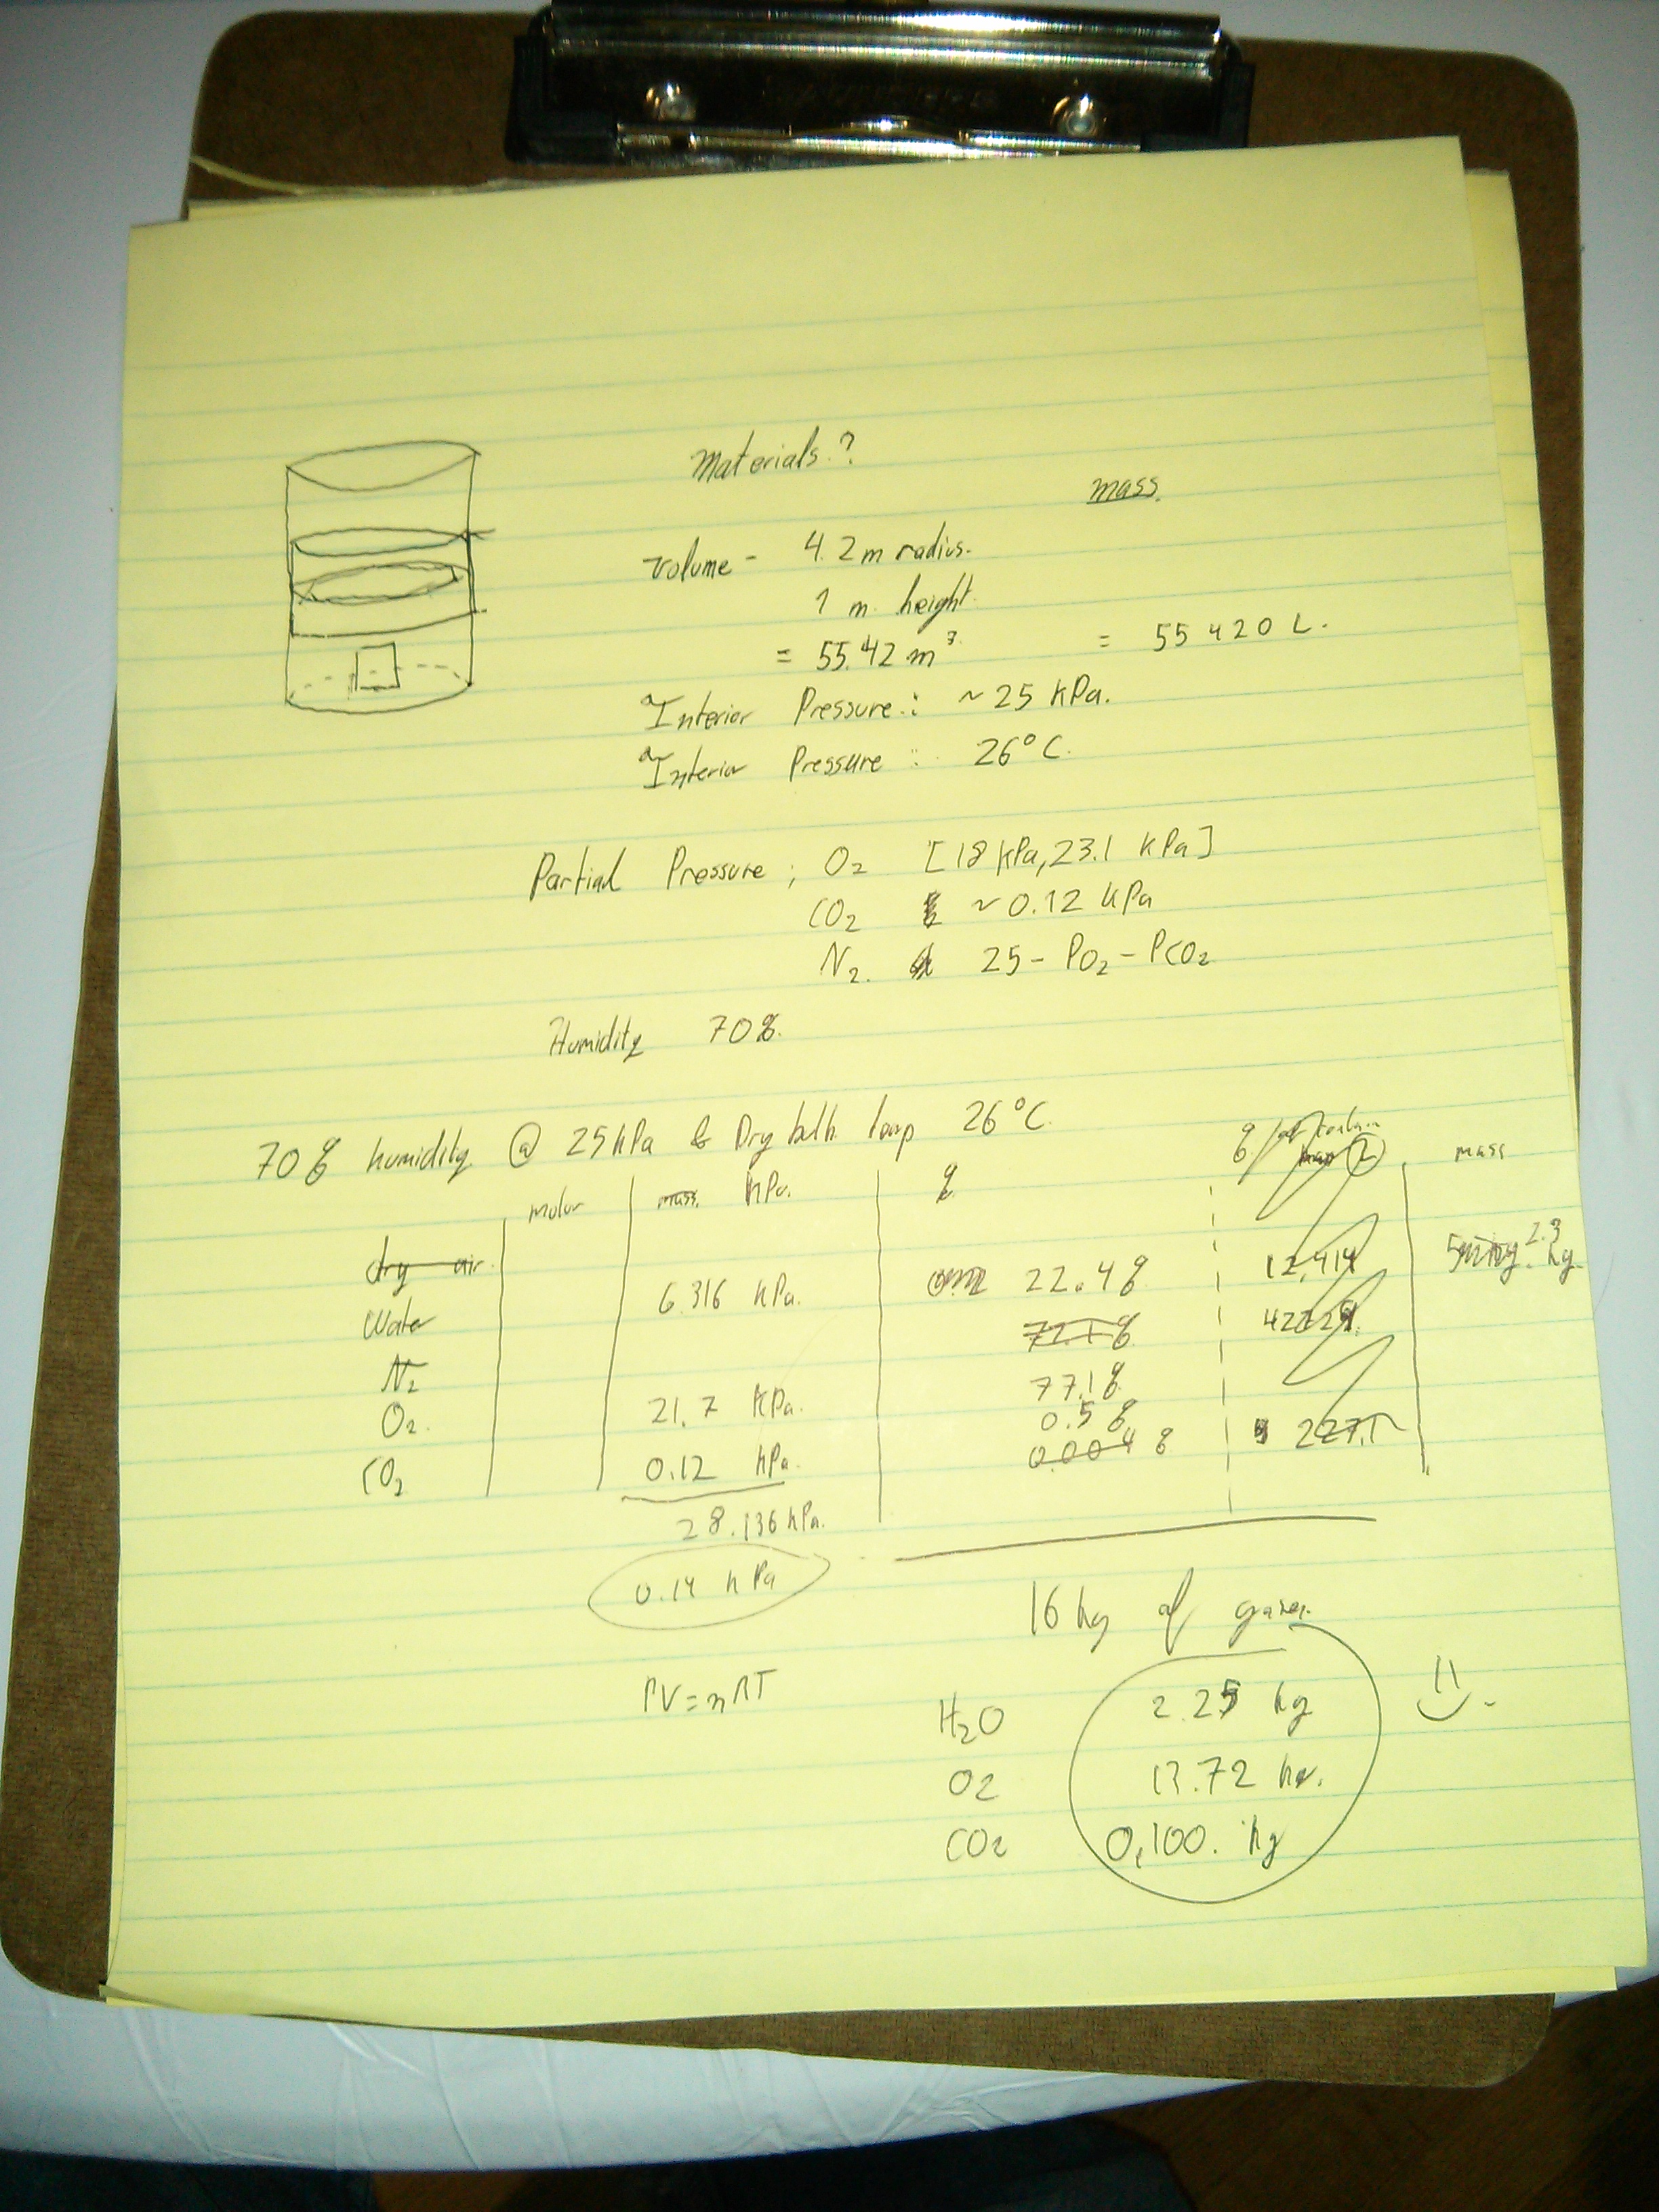 Materials?
mass.
Volume - 4.2 m radius.
1 m height.
= 55.42 m³ = 55 420 L.
Interior Pressure: ~25 kPa.
Interior Pressure : 26°C.
Partial Pressure ; O₂ [18 kPa, 23.1 kPa]
CO₂ ~0.12 kPa
N₂. 25 - PO₂ - PCO₂
Humidity 70%.
70% humidity @ 25 kPa & Dry bulb temp 26°C.
molar mass. kPa. % mass
dry air.
Water 6.316 kPa. 22.4% 12,414 2.3 kg.
77.1% 
N₂ 77.1%
O₂. 21.7 kPa. 0.5%
CO₂ 0.12 kPa. 0.004 % 227.1
28.136 kPa.
0.14 kPa
16 kg of gases.
PV=nRT
H₂O 2.25 kg
O₂ 13.72 kg.
CO₂ 0,100. kg